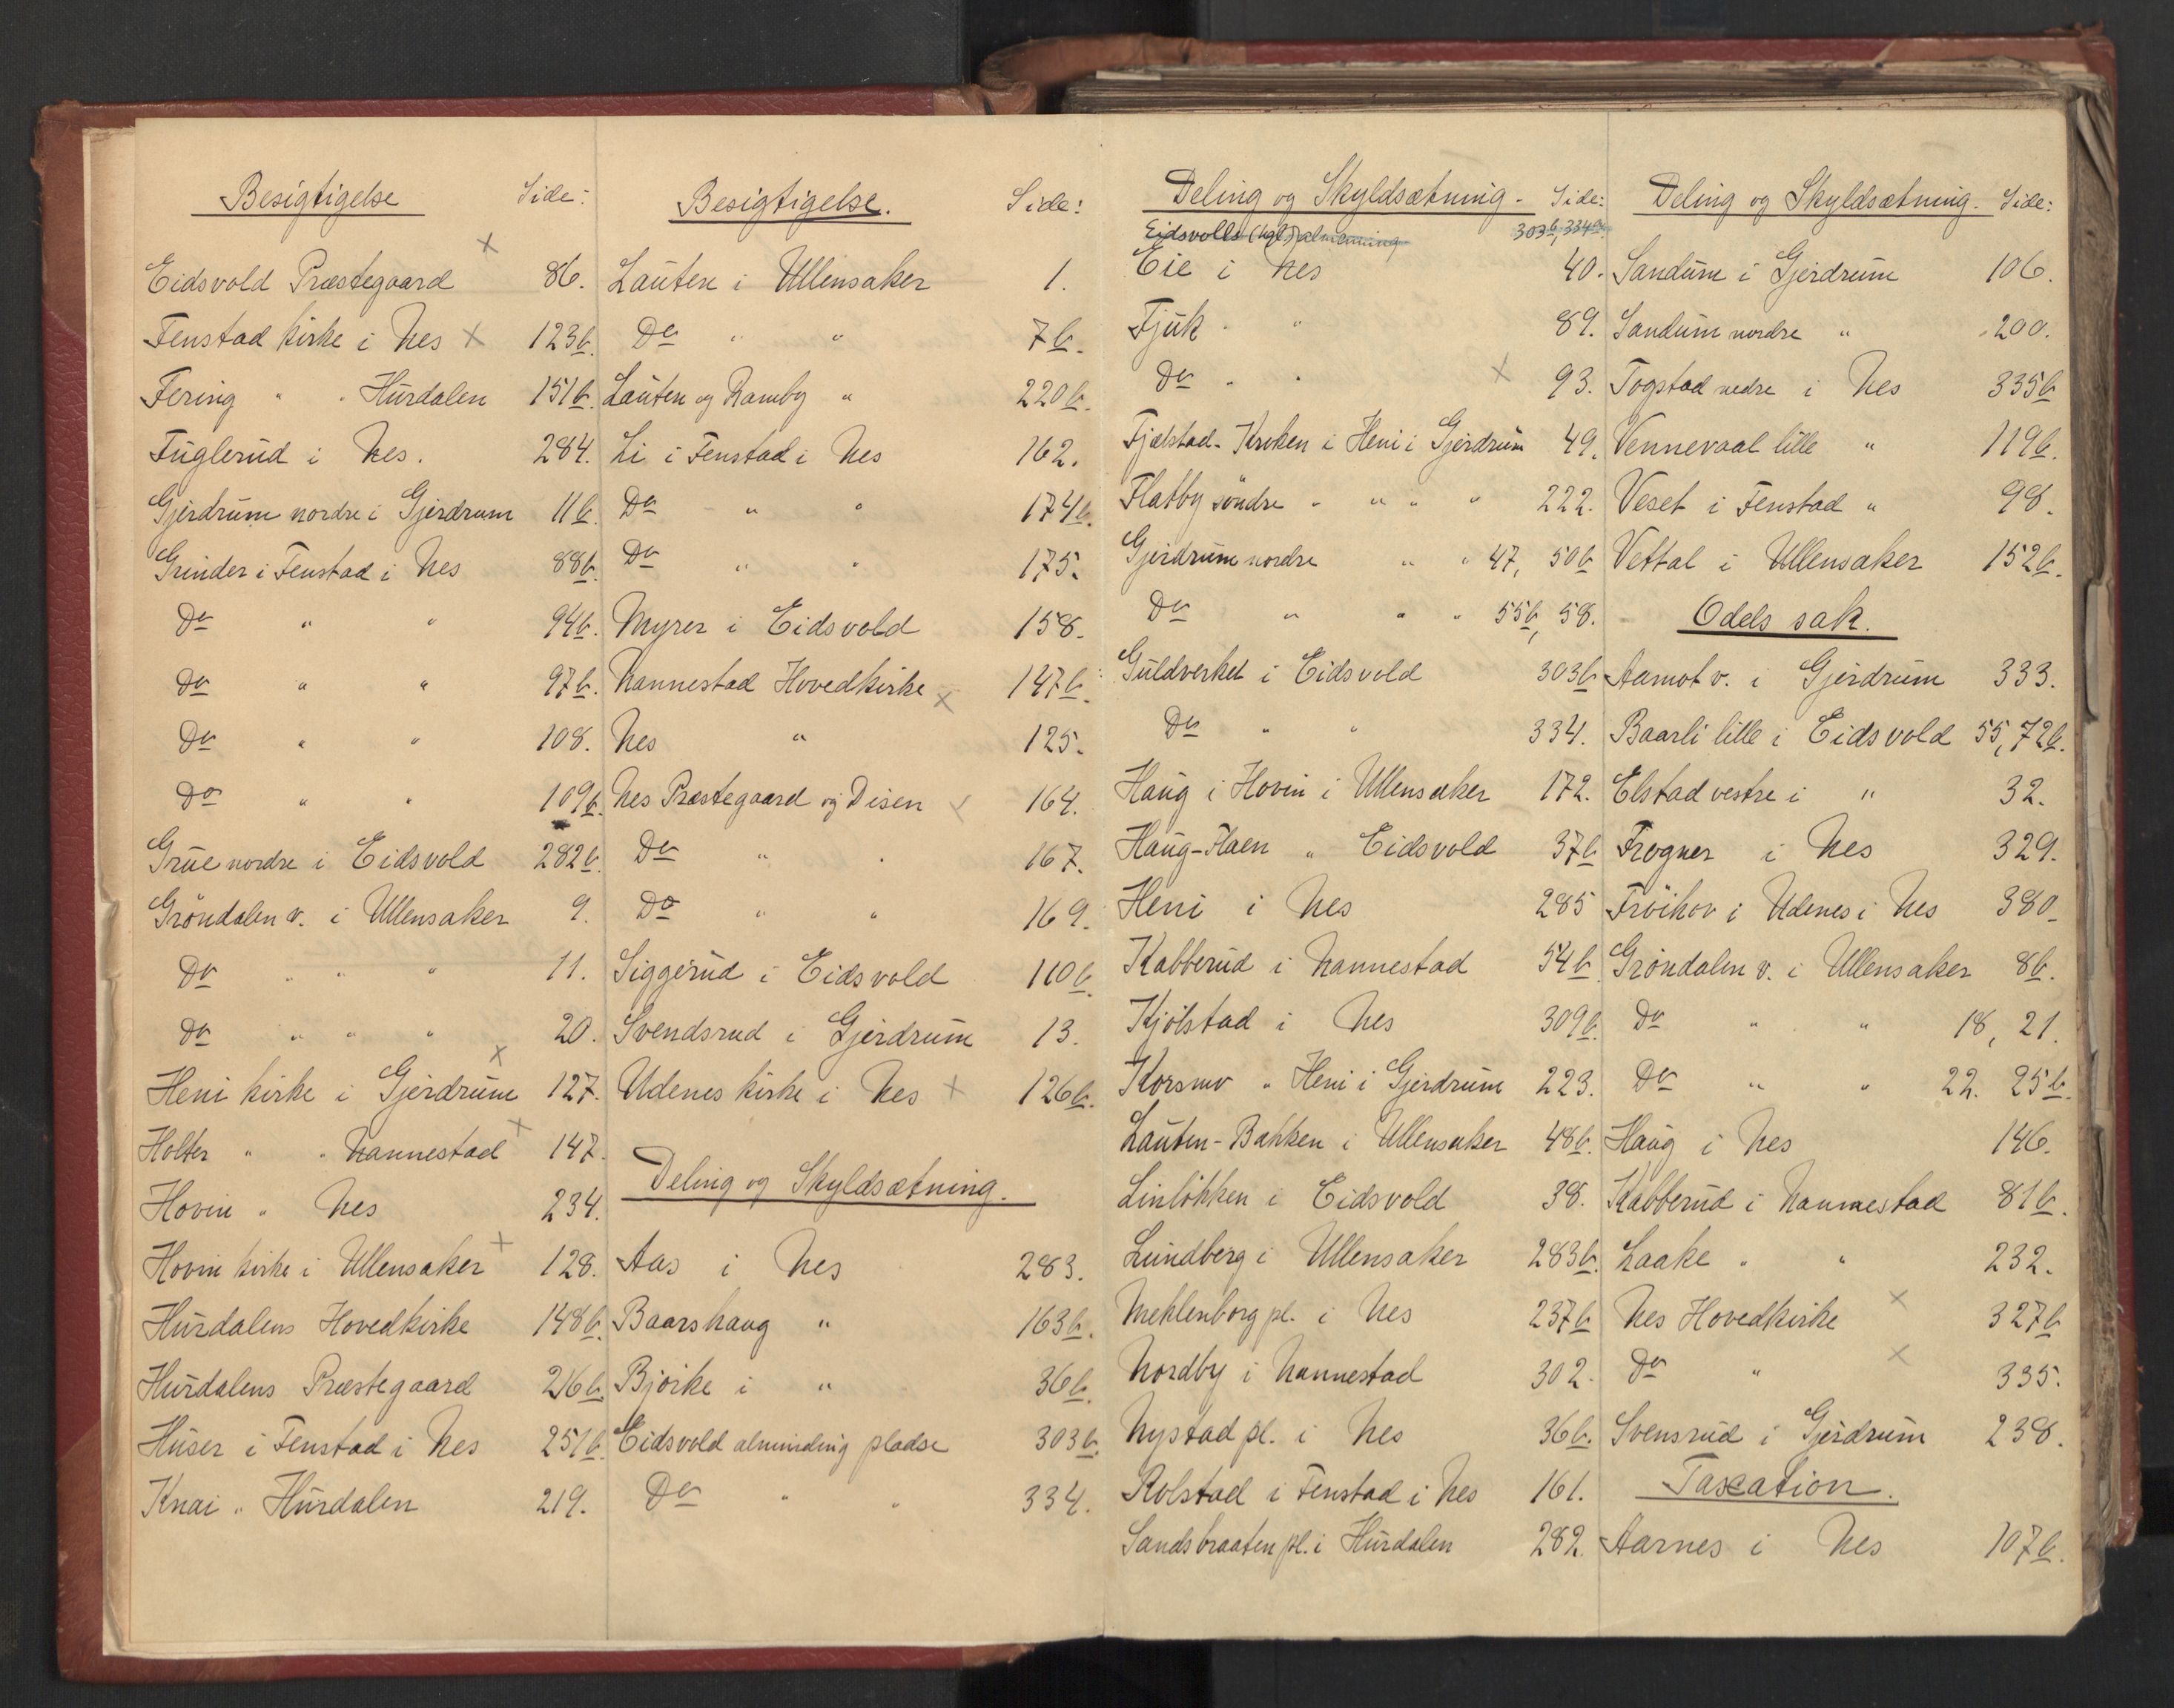 Besigtigelse Side:
Eidsvold Præstegaard × 86.
Fenstad kirke i Nes × 123b.
Fering " " Hurdalen 151b.
Fuglerud i Nes. 284.
Gjerdrum nordre i Gjerdrum 11b.
Grinder i Fenstad i Nes 88b.
Do " " 94b.
Do " " 97b.
Do " " 108.
Do " " 109b.
Grue nordre i Eidsvold 282b.
Gröndalen v. i Ullensaker 9.
Do " " " 11.
Do " " " 20.
Heni kirke i Gjerdrum × 127.
Holter " " Nannestad × 147.
Hovin " Nes 234.
Hovin kirke i Ullensaker × 128.
Hurdalens Hovedkirke 148b.
Hurdalens Præstegaard 216b.
Huser i Fenstad i Nes 251b.
Knai " Hurdalen 219.
Besigtigelse. Side:
Lauten i Ullensaker 1.
Do " " 7b.
Lauten og Ramby " 220b.
Li i Fenstad i Nes 162.
Do " " 174b.
Do " " 175.
Myrer i Eidsvold 158.
Nannestad Hovedkirke × 147b.
Nes " 125.
Nes Præstegaard og Disen × 164.
Do " " 167.
Do " " 169.
Siggerud i Eidsvold 110b.
Svendsrud i Gjerdrum 13.
Udenes kirke i Nes × 126b.
Deling og Skyldsætning.
Aas i Nes 283.
Baarshaug " 163b.
Bjørke i " 36b.
Eidsvold alminding pladse 303b.
Do " " 334.
Deling og Skyldsætning. Side:
Eidsvolls (kgl) almenning 303b, 334b.
Eie i Nes 40.
Fjuk " " 89.
Do " " × 93.
Fjælstad-Kroken i Heni i Gjerdrum 49.
Flatby söndre " " " " 222.
Gjerdrum nordre " " 47, 50b
Do " " " 55b, 58.
Guldverket i Eidsvold 303b
Do " " 334.
Haug i Hovin i Ullensaker 172.
Haug-Flaen " Eidsvold 37b
Heni i Nes 285
Kabberud i Nannestad 54b.
Kjölstad i Nes 309b.
Korsmo " Heni i Gjerdrum 223.
Lauten-Bakken i Ullensaker 48b.
Linlökken i Eidsvold 38.
Lundberg i Ullensaker 283b.
Meklenborg pl. i Nes 237b
Nordby i Nannestad 302.
Nystad pl. i Nes 36b.
Rolstad i Fenstad i Nes 161.
Sandsbraaten pl. i Hurdalen 282.
Deling og Skyldsætning. Side:
Sandum i Gjerdrum 106.
Sandum nordre " 200.
Togstad nedre i Nes 335b
Vennevaal lille " 119b.
Veset i Fenstad " 98.
Vettal i Ullensaker 152b.
Odels sak.
Aamot v. i Gjerdrum 333.
Baarli lille i Eidsvold 55, 72b.
Elstad vestre i " 32.
Frogner i Nes 329.
Fröihov i Udenes i Nes 380.
Gröndalen v. i Ullensaker 8b.
Do " " 18, 21.
Do " " 22. 25b.
Haug i Nes 146.
Kabberud i Nannestad 81b.
Laake " " 232.
Nes Hovedkirke × 327b
Do " × 335.
Svensrud i Gjerdrum 238.
Taxation.
Aarnes i Nes 107b.